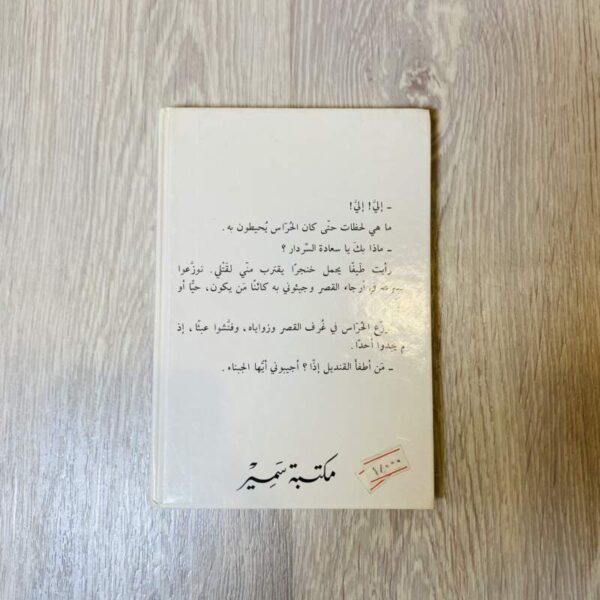 - إليَّ! إليَّ!
ما هي لحظات حتّى كان الحُرّاس يُحيطون به.
- ماذا بكَ يا سعادة السِّردار؟
رأيت طَيفًا يحمل خنجرًا يقترب منّي لقَتْلي. توزَّعوا
في أرجاء القصر وجيئوني به كائنًا مَن يكون، حيًّا أو
الحُرّاس في غُرف القصر وزواياه، وفتَّشوا عبثًا، إذ
يجدوا أحدًا.
- مَن أطفأ القنديل إذًا؟ أجيبوني أيُّها الجبناء.
مكتبة سَمِيرْ